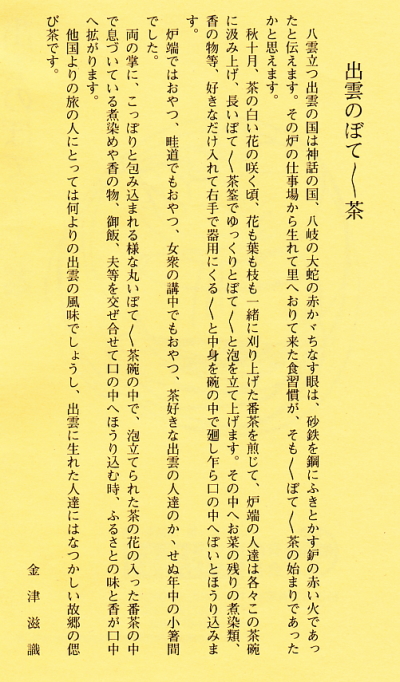 出雲のぼて〳〵茶
八雲立つ出雲の国は神話の国、八岐の大蛇の赤かゞちなす眼は、砂鉄を鋼にふきとかす鈩の赤い火であっ
たと伝えます。その炉の仕事場から生れて里へおりて来た食習慣が、そも〳〵ぼて〳〵茶の始まりであった
かと思えます。
秋十月、茶の白い花の咲く頃、花も葉も枝も一緒に刈り上げた番茶を煎じて、炉端の人達は各々この茶碗
に汲み上げ、長いぼて〳〵茶筌でゆっくりとぼて〳〵と泡を立て上げます。その中へお菜の残りの煮染類、
香の物等、好きなだけ入れて右手で器用にくる〳〵と中身を碗の中で廻し乍ら口の中へぽいとほうり込みま
す。
炉端ではおやつ、畦道でもおやつ、女衆の講中でもおやつ、茶好きな出雲の人達のかゝせぬ年中の小箸間
でした。
両の掌に、こっぽりと包み込まれる様な丸いぼて〳〵茶碗の中で、泡立てられた茶の花の入った番茶の中
で息づいている煮染めや香の物、御飯、夫等を交ぜ合せて口の中へほうり込む時、ふるさとの味と香が口中
へ拡がります。
他国よりの旅の人にとっては何よりの出雲の風味でしょうし、出雲に生れた人達にはなつかしい故郷の偲
び茶です。
金津滋識